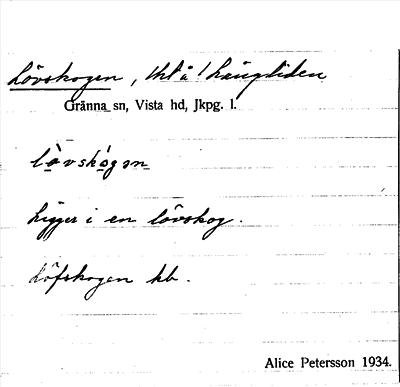 Lövskogen, thl å Långliden
Gränna sn, Vista hd, Jkpg. l.
lòvskògən
Ligger i en lövskog.
Löfskogen kb.
Alice Petersson 1934.